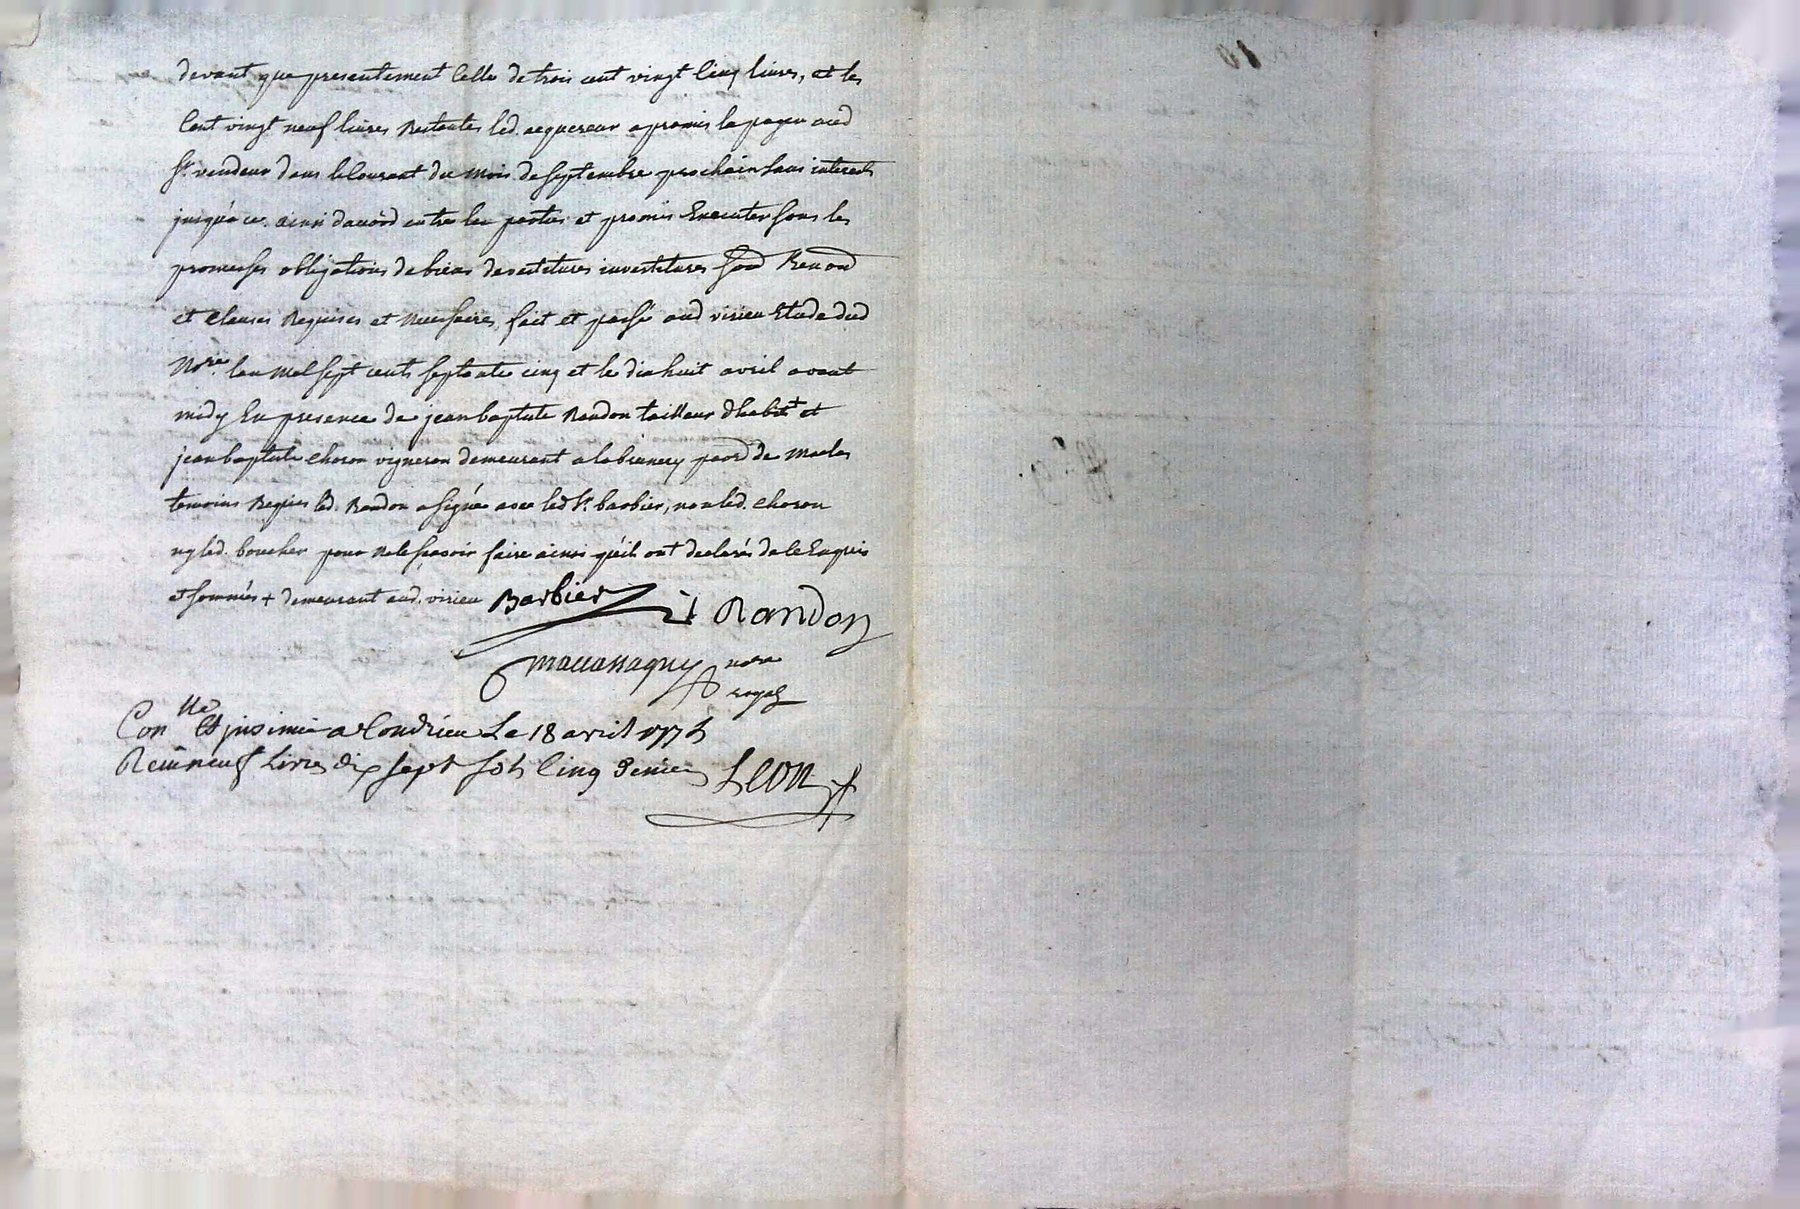 devant que presentement celle de trois cent vingt cinq livres, et les
Cent vingt neuf livres Restantes led. acquereur a promis la payer aud
Sr. vendeur dans le Courant du mois de septembre prochain sans interests
jusqu'a ce. ainsi d'accord entre les parties et promis Executer sous les
promesses obligations de biens devestitures investitures
et Clauses Requises et Necessaires, fait et passé aud virieu Etude dud
Nore. l'an Mil sept cents septante cinq et le dixhuit avril avant
midy En presence de jean baptiste Randon tailleur d'habit + et
jean baptiste Choron vigneron demeurant a de
temoins Requis led. Randon a signé avec led Sr. barbier, non led. Choron
ny led. boucher pour ne le sçavoir faire ainsi qu'ils ont declarés de ce Enquis
et sommés + demeurant aud. virieu Barbier Randon
nore
royal
Conllé et insinué a Condrieu Le 18 avril 1775
Reçu neuf Livres dix sept sols Cinq deniers Leon
10